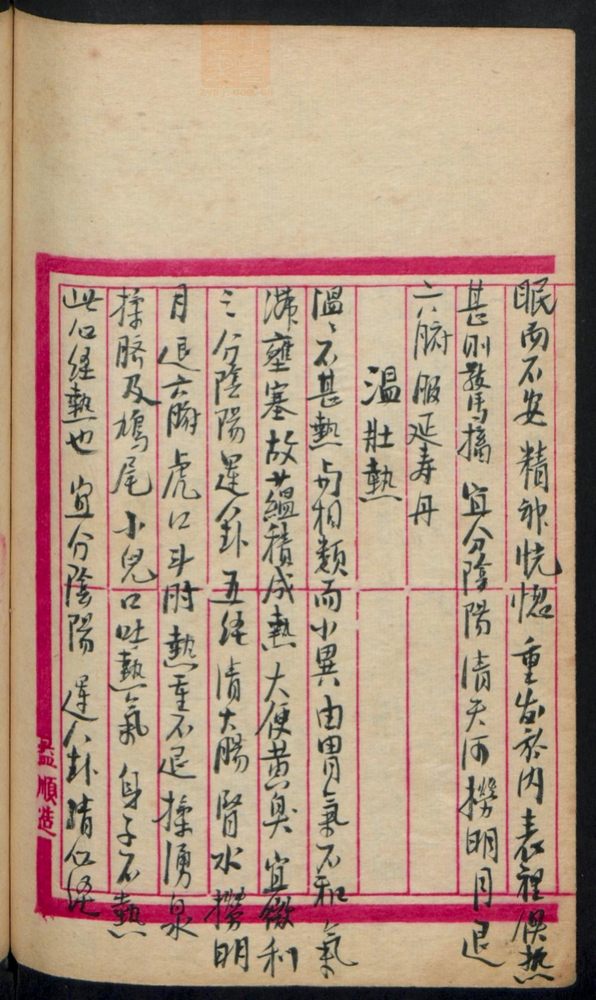 眠而不安精神恍惚重發於內表裡俱热
甚則驚搐宜分陰陽清天河撈明月退
六腑服延寿丹
溫壯熱
溫〻不甚熱与相類而小異由胃氣不和氣
滞壅塞故蕴積成熱大便黄臭宜微利
之分陰陽運八卦五経清大腸腎水撈明
月退六腑虎口斗肘熱重不退揉湧泉
揉臍及鳩尾小兒口吐熱氣身子不熱
此心経熱也宜分陰陽運八卦清心経
順造